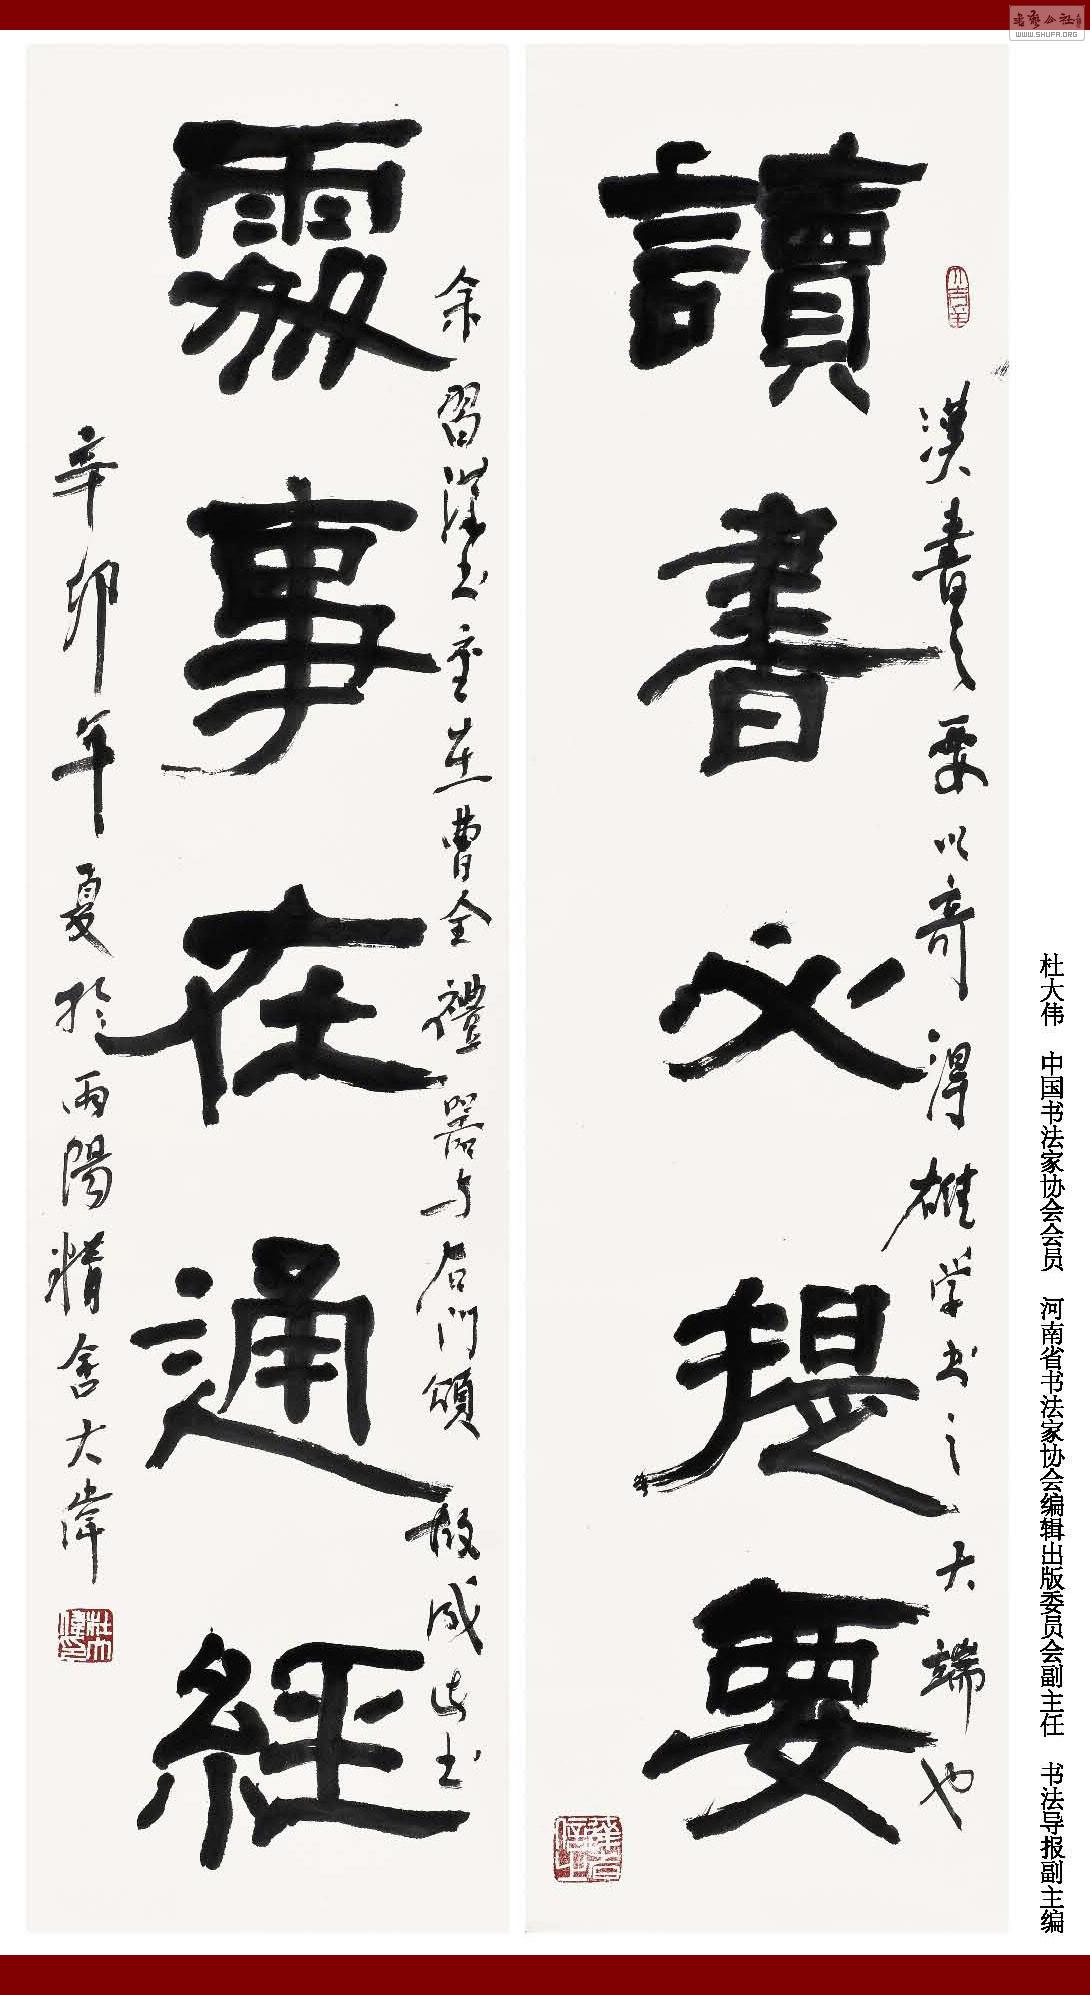 讀書必提要
漢書之要以奇得雄学书之大端也
處事在通經
余習漢书重在曹全禮器与石門頌故成此书
辛卯年夏於雨陽精舍大偉
杜大伟 中国书法家协会会员 河南省书法家协会编辑出版委员会副主任 书法导报副主编
WWW.SHUFA.ORG